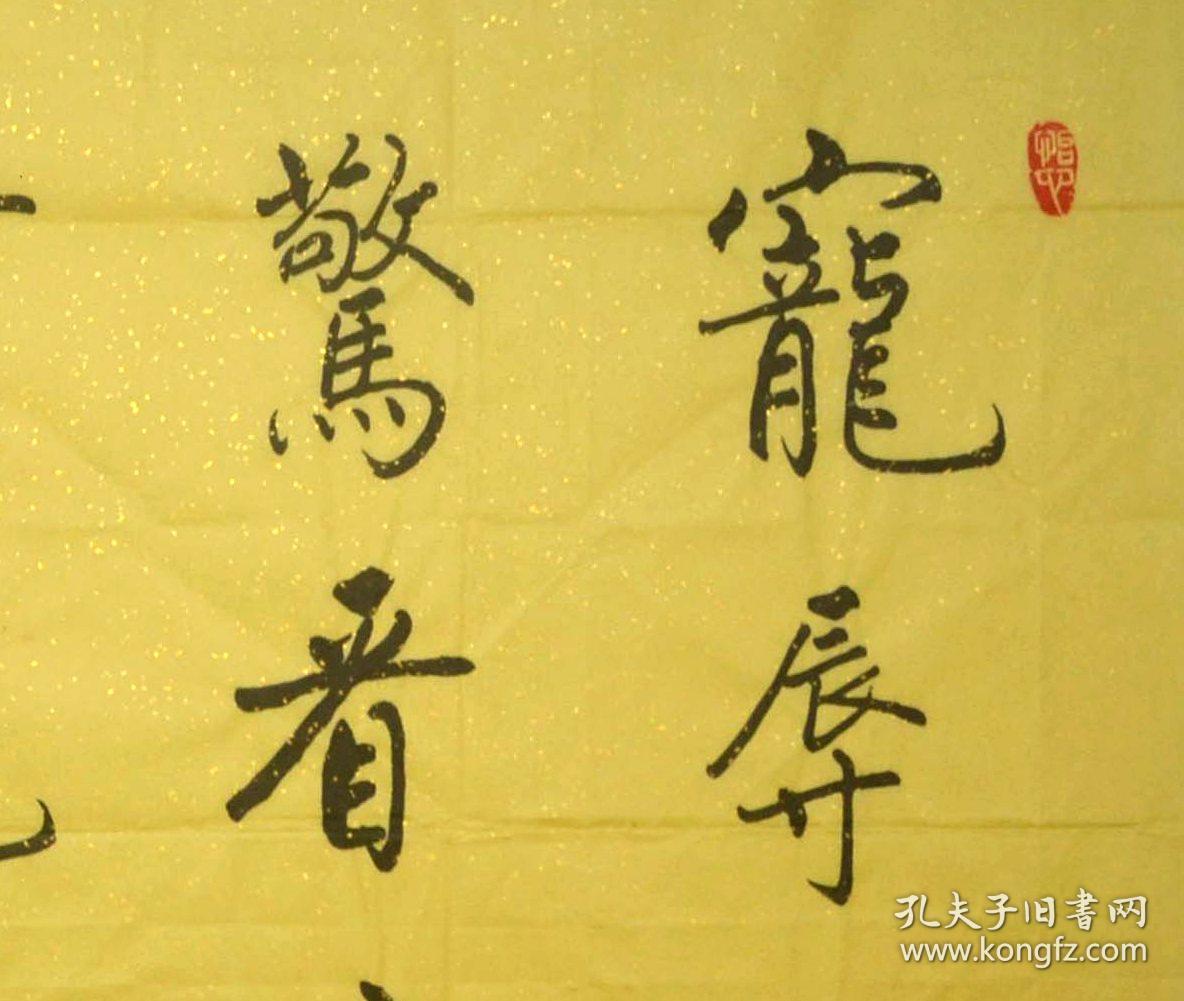 寵辱
驚看
孔夫子旧書网
www.kongfz.com